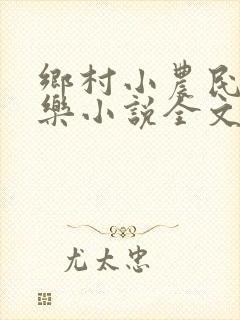 鄉村小農民
樂小說全文
尤太忠